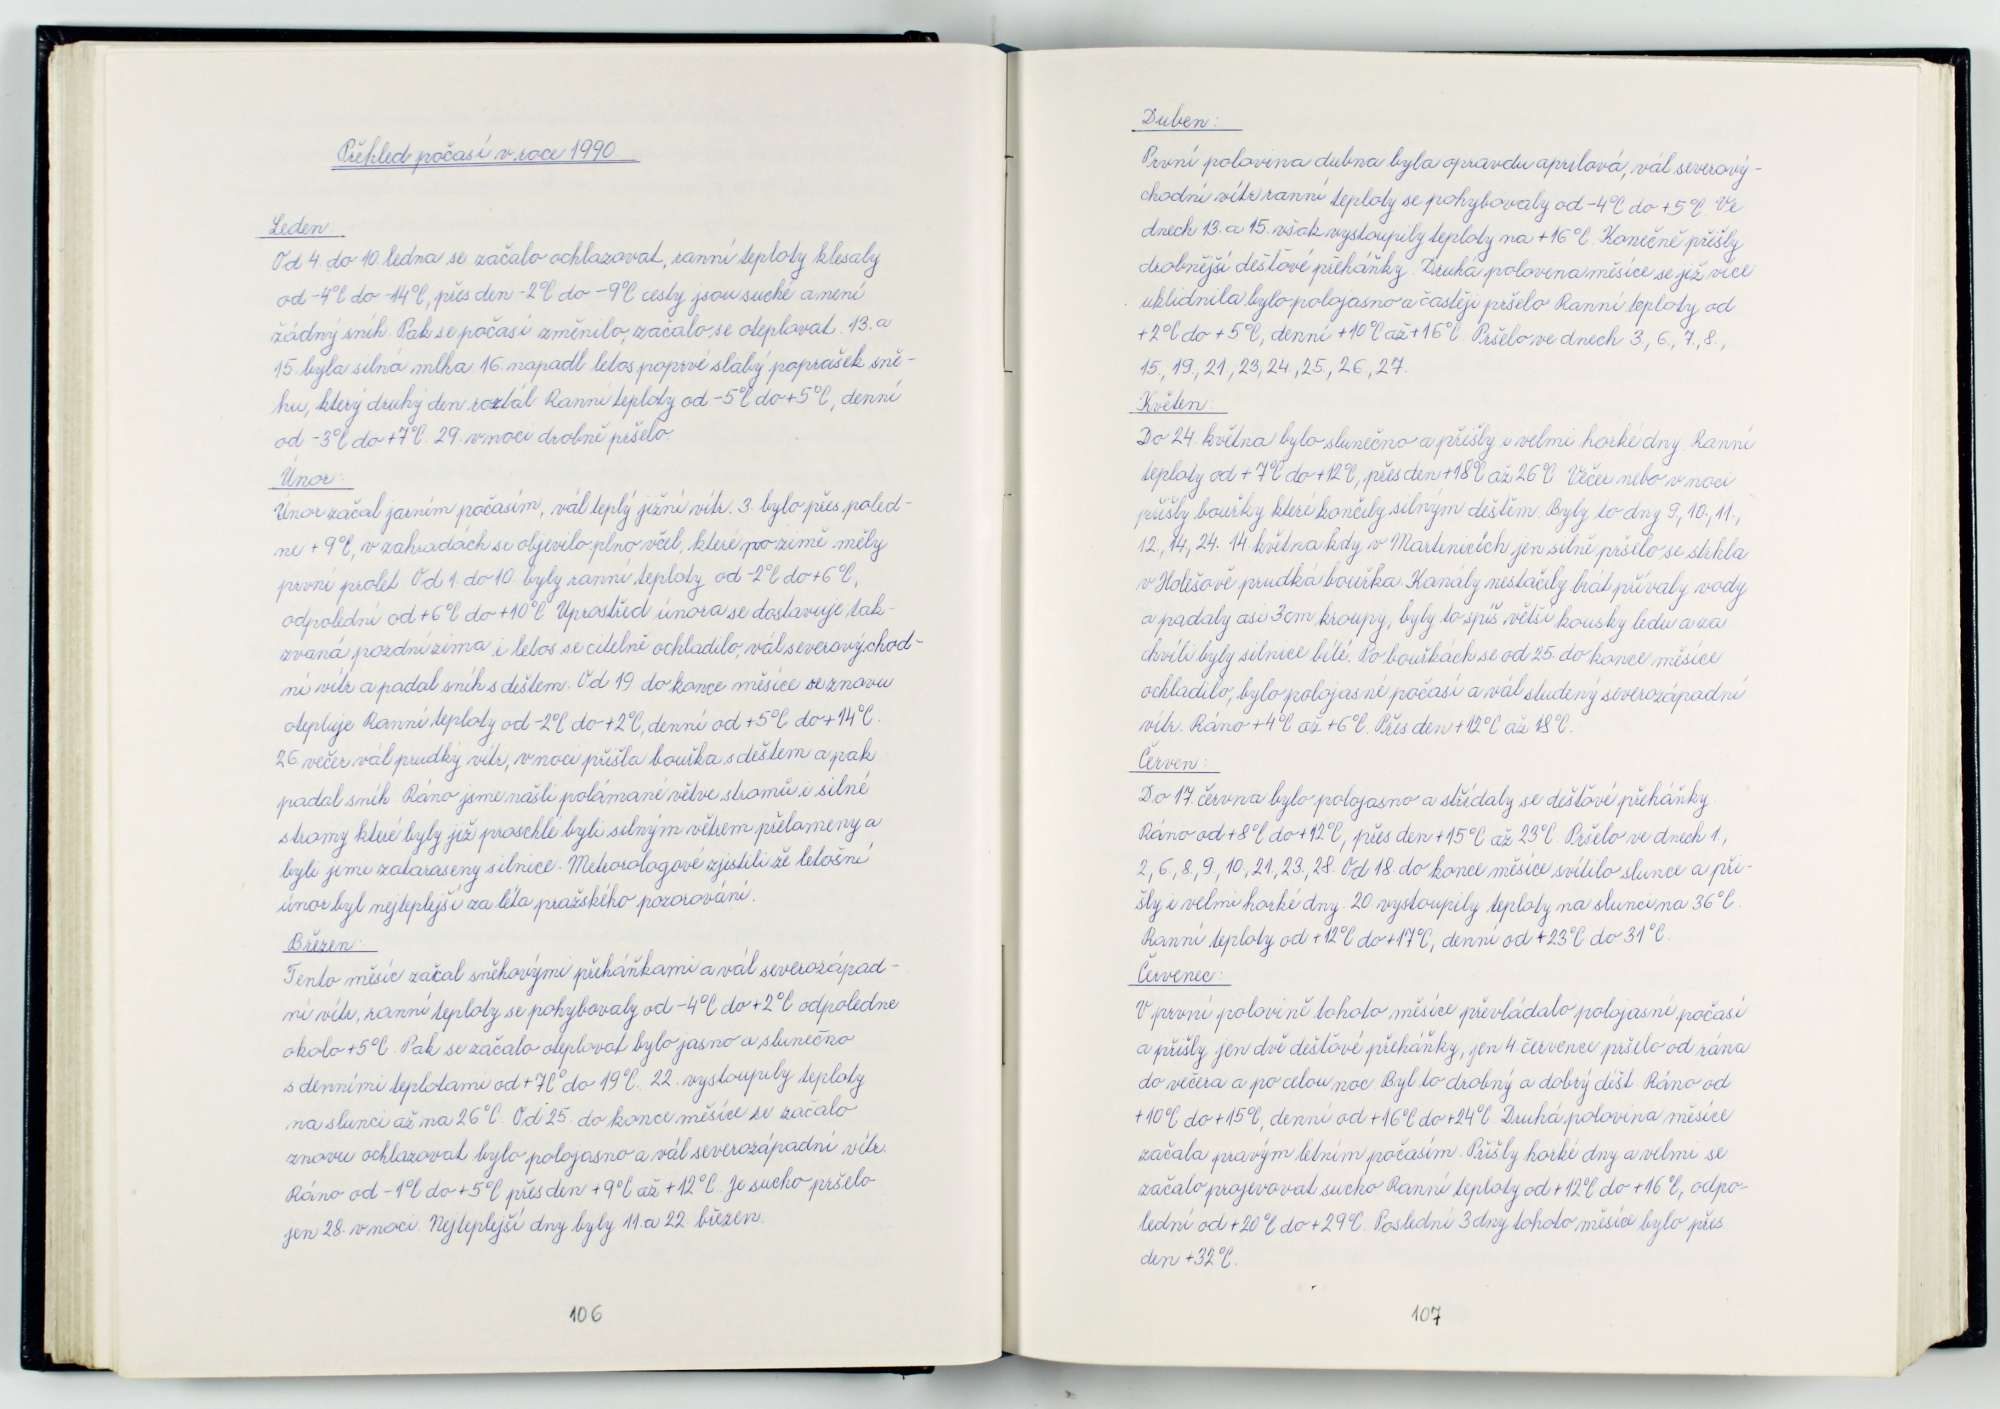 Přehled počasí v roce 1990
Leden:
Od 4. do 10. ledna se začalo ochlazovat, ranní teploty klesaly
od -4°C do -14°C, přes den -2°C do -9°C cesty jsou suché a není
žádný sníh. Pak se počasí změnilo, začalo se oteplovat. 13. a
15. byla silná mlha 16. napadl letos poprvé slabý poprašek sně-
hu, který druhý den roztál. Ranní teploty od -5°C do +5°C, denní
od -3°C do +7°C. 29. v noci drobně pršelo.
Únor:
Únor začal jarním počasím, vál teplý jižní vítr. 3. bylo přes poled-
ne +9°C, v zahradách se objevilo plno včel, které po zimě měly
první prolet. Od 1. do 10. byly ranní teploty od -2°C do +6°C,
odpolední od +6°C do +10°C. Uprostřed února se dostavuje tak-
zvaná pozdní zima i letos se citelně ochladilo, vál severovýchod-
ní vítr a padal sníh s deštem. Od 19. do konce měsíce se znovu
otepluje. Ranní teploty od -2°C do +2°C, denní od +5°C do +14°C.
26 večer vál prudký vítr, v noci přišla bouřka s deštem a pak
padal sníh. Ráno jsme našli polámané větve stromů i silné
stromy které byly již proschlé byli silným větrem přelameny a
byli jimi zataraseny silnice. Meteorologové zjistili že letošní
únor byl nejteplejší za léta pražského pozorování.
Březen:
Tento měsíc začal sněhovými přeháňkami a vál severozápad-
ní vítr, ranní teploty se pohybovaly od -4°C do +2°C odpoledne
okolo +5°C. Pak se začalo oteplovat bylo jasno a slunečno
s denními teplotami od +7C° do 19°C. 22. vystoupily teploty
na slunci až na 26°C. Od 25. do konce měsíce se začalo
znovu ochlazovat bylo polojasno a vál severozápadní vítr.
Ráno od -1°C do +5°C přes den +9°C až +12°C. Je sucho pršelo
jen 28. v noci. Nejteplejší dny byly 11. a 22. březen.
106
Duben:
První polovina dubna byla opravdu aprilová, vál severový-
chodní vítr ranní teploty se pohybovaly od -4°C do +5°C. Ve
dnech 13. a 15. však vystoupily teploty na +16°C. Konečně přišly
drobnější dešťové přeháňky. Druhá polovena měsíce se již více
uklidnila bylo polojasno a častěji pršelo. Ranní teploty od
+2°C do +5°C, denní +10°C až +16°C. Pršelo ve dnech 3., 6., 7., 8.,
15., 19., 21, 23, 24., 25., 26, 27.
Květen:
Do 24. května bylo slunečno a přišly i velmi horké dny. Ranní
teploty od +7°C do +12°C, přes den +18°C až 26°C. Večer nebo v noci
přišly bouřky které končily silným deštěm. Byly to dny 9., 10., 11.,
12., 14., 24. 14 května kdy v Martinicích jen silně pršelo se strhla
v Holešově prudká bouřka. Kanály nestačily brát přívaly vody
a padaly asi 3cm kroupy, byly to spíš větší kousky ledu a za
chvíli byly silnice bílé. Po bouřkách se od 25. do konce měsíce
ochladilo, bylo polojasné počasí a vál studený severozápadní
vítr. Ráno +4°C až +6°C. Přes den +12°C až 18°C.
Červen:
Do 17. června bylo polojasno a střídaly se dešťové přeháňky.
Ráno od +8°C do +12°C, přes den +15°C až 23°C. Pršelo ve dnech 1.,
2., 6., 8., 9., 10., 21., 23., 28. Od 18. do konce měsíce svítilo slunce a při-
šly i velmi horké dny. 20. vystoupily teploty na slunci na 36°C.
Ranní teploty od +12°C do +17°C, denní od +23°C do 31°C.
Červenec:
V první polovině tohoto měsíce převládalo polojasné počasí
a přišly jen dvě dešťové přeháňky, jen 4 července pršelo od rána
do večera a po celou noc. Byl to drobný a dobrý déšt. Ráno od
+10°C do +15°C, denní od +16°C do +24°C. Druhá polovina měsíce
začala pravým letním počasím. Přišly horké dny a velmi se
začalo projevovat sucho. Ranní teploty od +12°C do +16°C, odpo-
lední od +20°C do +29°C. Poslední 3 dny tohoto měsíce bylo přes
den +32°C.
107